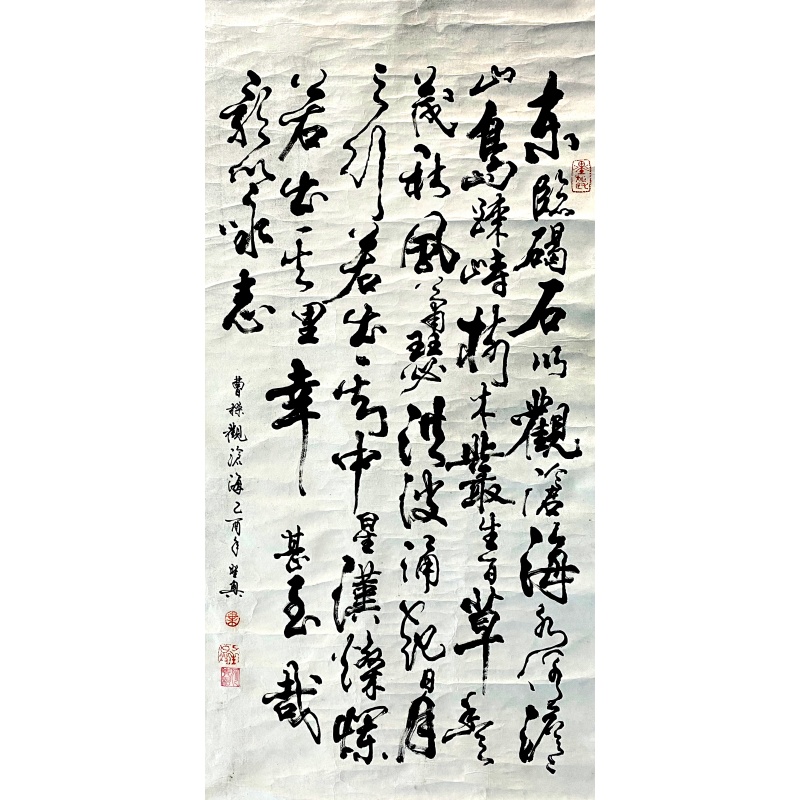 东臨碣石以觀滄海水何澹々
山島竦峙樹木叢生百草豐
茂秋風蕭瑟洪波涌起日月
之行若出其中星漢燦爛
若出其里幸甚至哉
歌以咏志
曹操觀滄海乙酉年